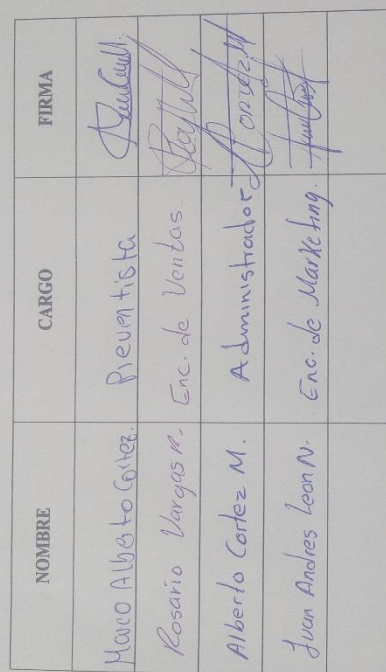 NOMBRE CARGO FIRMA
Marco Alberto Cortez. Preventista
Rosario Vargas R. Enc. de Ventas
Alberto Cortez M. Administrador
Juan Andres Leon N. Enc. de Marketing.